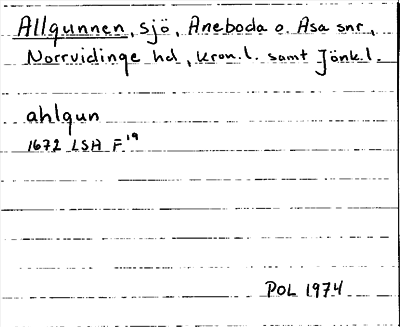 Allgunnen, sjö, Aneboda o. Asa snr,
Norrvidinge hd, kron.l. samt Jönk.l.
ahlgun
1672 LSA F¹⁹
POL 1974